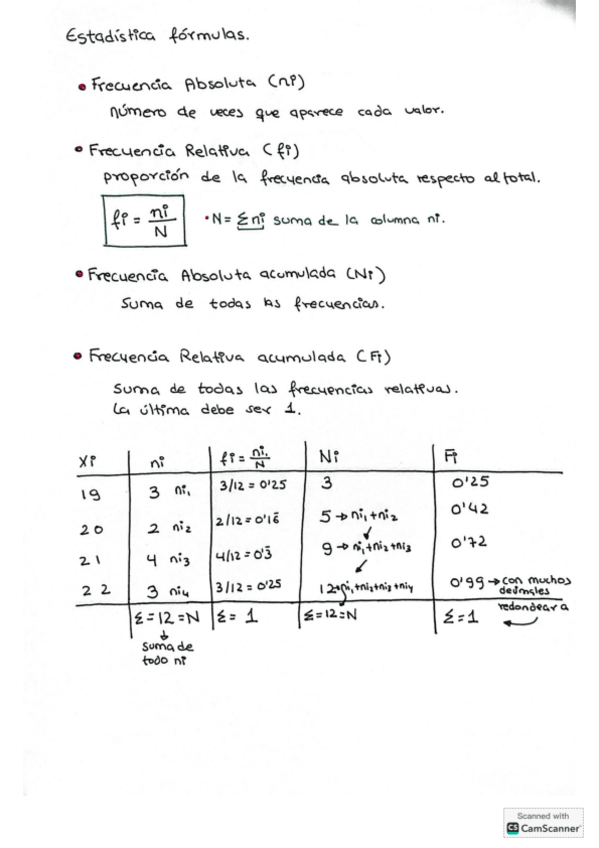 Estadística fórmulas.
• Frecuencia Absoluta (ni)
número de veces que aparece cada valor.
• Frecuencia Relativa (fi)
proporción de la frecuencia absoluta respecto al total.
fi = ni/N • N = Σni suma de la columna ni.
• Frecuencia Absoluta acumulada (Ni)
Suma de todas las frecuencias.
• Frecuencia Relativa acumulada (Fi)
Suma de todas las frecuencias relativas.
La última debe ser 1.
Xi ni fi = ni/N Ni Fi
19 3 ni₁ 3/12 = 0'25 3 0'25
20 2 ni₂ 2/12 = 0'16̄ 5 → ni₁+ni₂ 0'42
21 4 ni₃ 4/12 = 0'3̄ 9 → ni₁+ni₂+ni₃ 0'72
22 3 ni₄ 3/12 = 0'25 12 ni₁+ni₂+ni₃+ni₄ 0'99 → con muchos
decimales
redondear a
Σ=12=N Σ= 1 Σ=12=N Σ=1
Suma de
todo ni
Scanned with
CS CamScanner